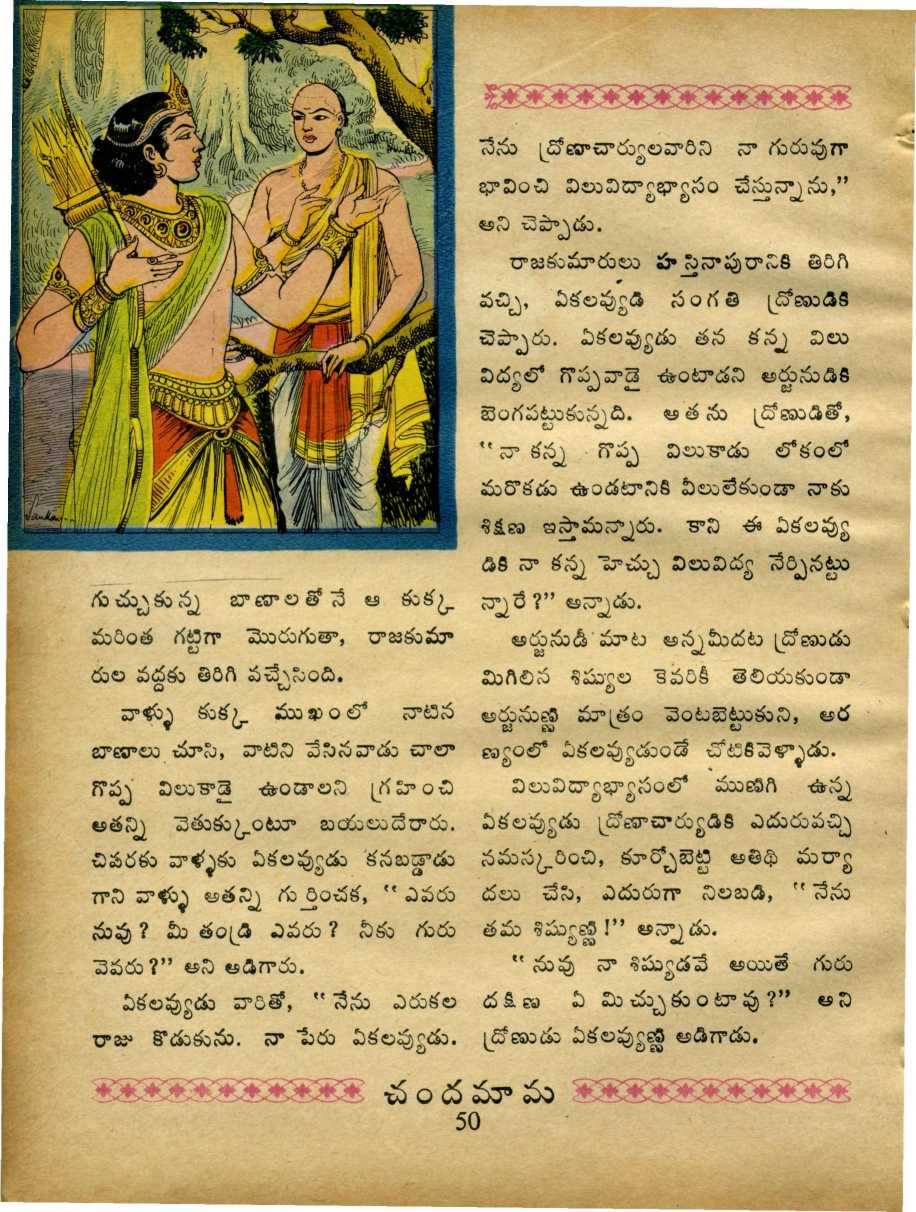 గుచ్చుకున్న బాణాలతోనే ఆ కుక్క
మరింత గట్టిగా మొరుగుతా, రాజకుమా
రుల వద్దకు తిరిగి వచ్చేసింది.
వాళ్ళు కుక్క ముఖంలో నాటిన
బాణాలు చూసి, వాటిని వేసినవాడు చాలా
గొప్ప విలుకాడై ఉండాలని గ్రహించి
అతన్ని వెతుక్కుంటూ బయలుదేరారు.
చివరకు వాళ్ళకు ఏకలవ్యుడు కనబడ్డాడు
గాని వాళ్ళు అతన్ని గుర్తించక, “ఎవరు
నువు? మీ తండ్రి ఎవరు? నీకు గురు
వెవరు?” అని అడిగారు.
ఏకలవ్యుడు వారితో, “నేను ఎరుకల
రాజు కొడుకును. నా పేరు ఏకలవ్యుడు.
నేను ద్రోణాచార్యులవారిని నా గురువుగా
భావించి విలువిద్యాభ్యాసం చేస్తున్నాను,”
అని చెప్పాడు.
రాజకుమారులు హస్తినాపురానికి తిరిగి
వచ్చి, ఏకలవ్యుడి సంగతి ద్రోణుడికి
చెప్పారు. ఏకలవ్యుడు తన కన్న విలు
విద్యలో గొప్పవాడై ఉంటాడని అర్జునుడికి
బెంగపట్టుకున్నది. అతను ద్రోణుడితో,
“నా కన్న గొప్ప విలుకాడు లోకంలో
మరొకడు ఉండటానికి వీలులేకుండా నాకు
శిక్షణ ఇస్తామన్నారు. కాని ఈ ఏకలవ్యు
డికి నా కన్న హెచ్చు విలువిద్య నేర్పినట్టు
న్నారే?” అన్నాడు.
అర్జునుడీ మాట అన్నమీదట ద్రోణుడు
మిగిలిన శిష్యుల కెవరికీ తెలియకుండా
అర్జునుణ్ణి మాత్రం వెంటబెట్టుకుని, అర
ణ్యంలో ఏకలవ్యుడుండే చోటికివెళ్ళాడు.
విలువిద్యాభ్యాసంలో ముణిగి ఉన్న
ఏకలవ్యుడు ద్రోణాచార్యుడికి ఎదురువచ్చి
నమస్కరించి, కూర్చోబెట్టి అతిథి మర్యా
దలు చేసి, ఎదురుగా నిలబడి, “నేను
తమ శిష్యుణ్ణి!” అన్నాడు.
“నువు నా శిష్యుడవే అయితే గురు
దక్షిణ ఏ మిచ్చుకుంటావు?” అని
ద్రోణుడు ఏకలవ్యుణ్ణి అడిగాడు.
చందమామ
50